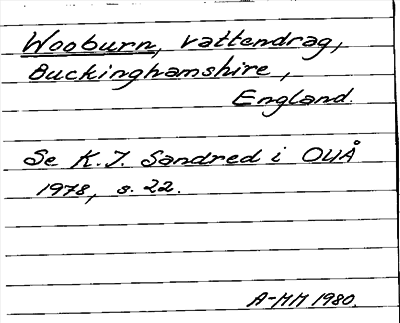 Wooburn, vattendrag,
Buckinghamshire,
England.
Se K. I. Sandred i OUÅ
1978, s. 22.
A-MM 1980.